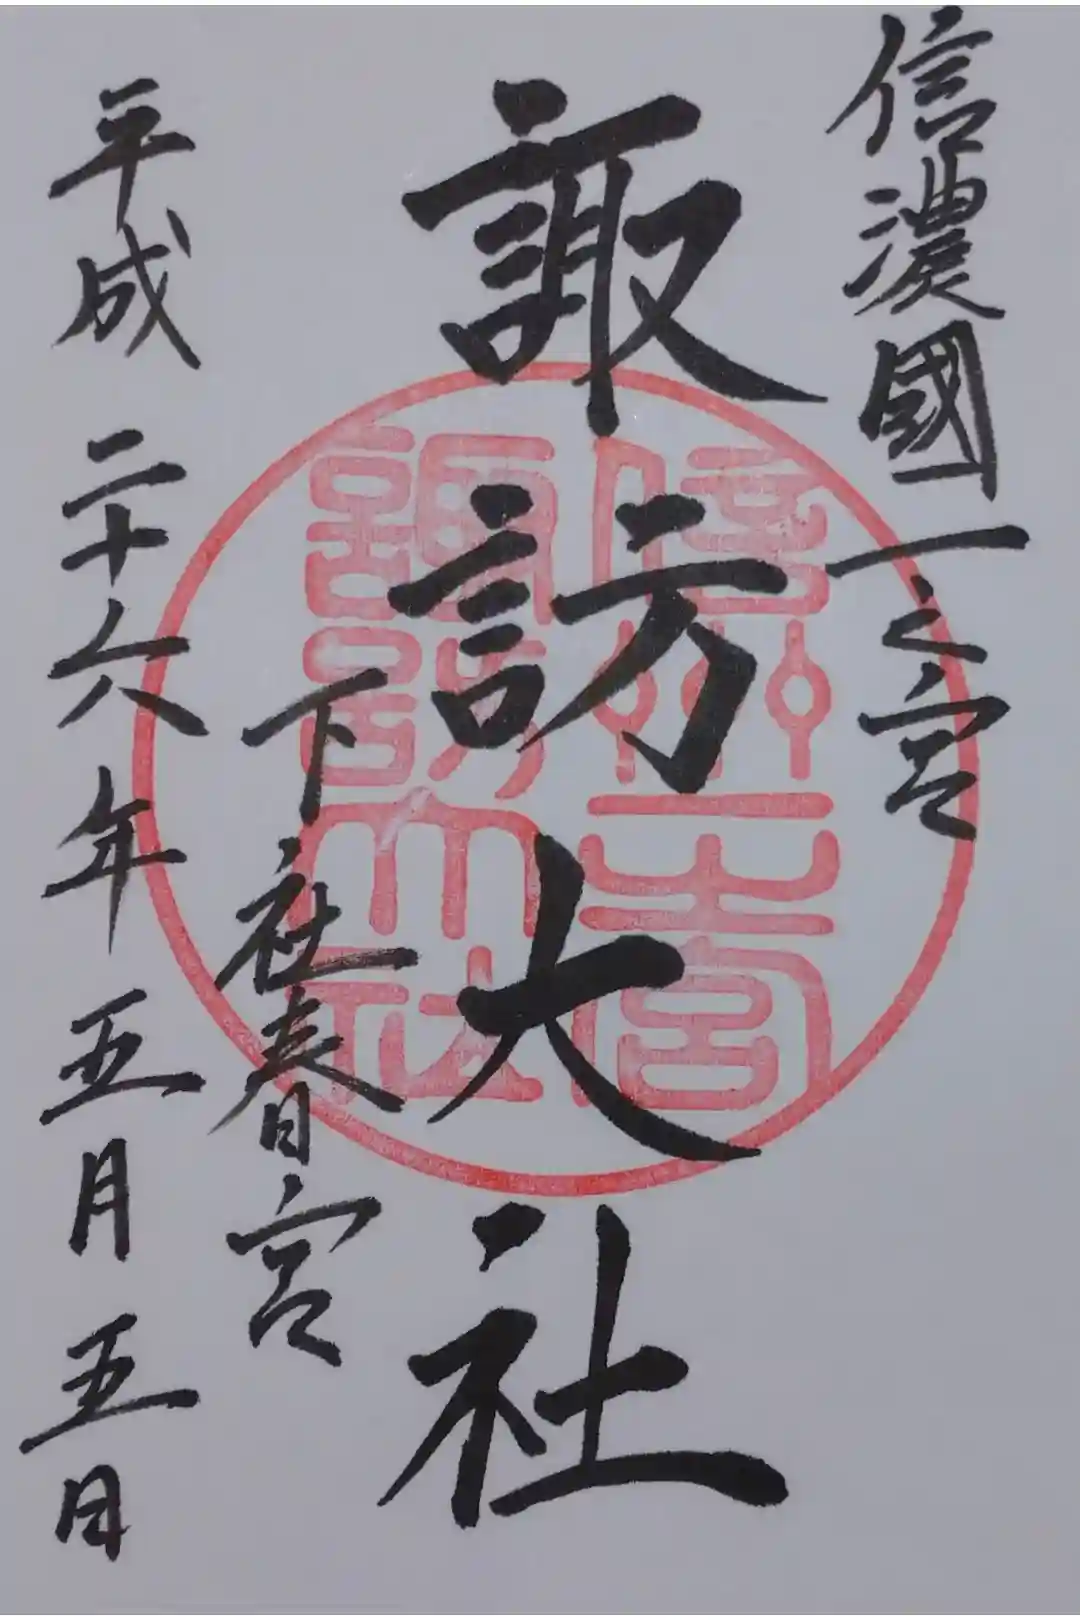 信濃國一之宮
諏訪大社
下社春宮
平成二十六年五月五日
信州一之宮
諏訪大社